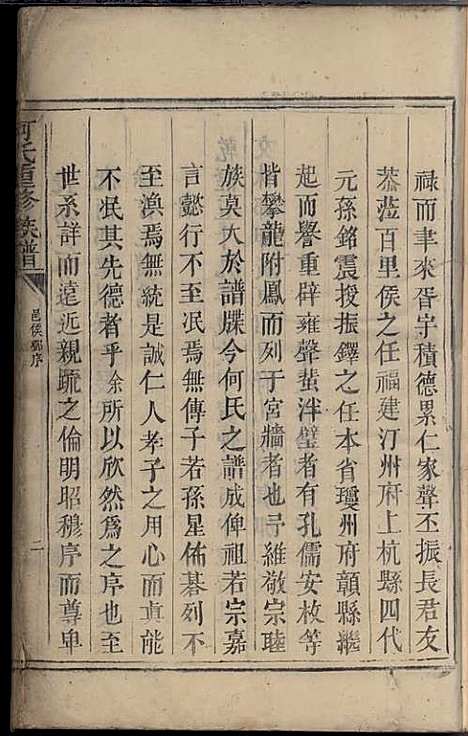 祿而聿來胥宇積德累仁家聲丕振長君友
恭蒞百里侯之任福建汀州府上杭縣四代
元孫銘震授振鐸之任本省瓊州府
起而譽重辟雍聲蜚泮璧者有孔儒安枚等
皆攀龍附鳳而列于宮牆者也予維敬宗睦
族莫大於譜牒今何氏之譜成俾祖若宗嘉
言懿行不至泯焉無傳子若孫星佈碁列不
至渙焉無統是誠仁人孝子之用心而真能
不泯其先德者乎余所以欣然為之序也至
世系詳而遠近親疏之倫明昭穆序而尊卑
何氏重修族譜
邑侯 序
二